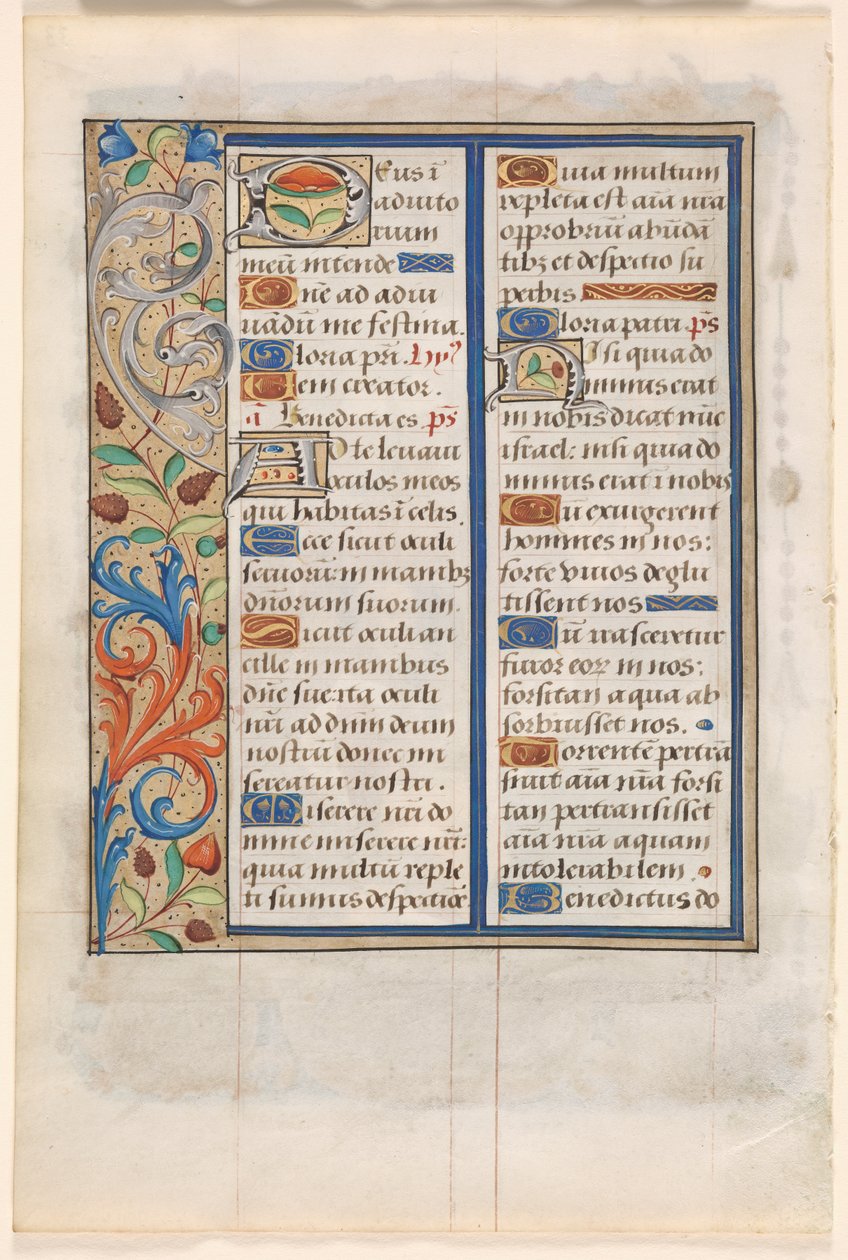 Deus ī
adiuto
rium
meū intende
Dne ad adiu
uādū me festina.
Gloria pri. hyꝰ
Mem creator.
ā Benedicta es. ps
AD te leuaui
oculos meos
qui habitas ī celis.
Ecce sicut oculi
seruorū: in manibꝫ
dn̄orum suorum.
Sicut oculi an
cille in manibus
dn̄e sue: ita oculi
nr̄i ad dnm deum
nostrū donec mi
sereatur nostri.
Miserere nr̄i do
mine miserere nr̄i:
quia multū reple
ti sumus despectiōe.
Quia multum
repleta est aīa nr̄a
opprobriū abūdā
tibꝫ et despectio su
perbis
Gloria patri. ps
NIsi quia do
minus erat
in nobis dicat nūc
israel: nisi quia do
minus erat ī nobis
Cū exurgerent
homines in nos:
forte viuos deglu
tissent nos
Cū irasceretur
furor eoꝝ in nos:
forsitan aqua ab
sorbuisset nos.
Torrentē pertrā
siuit aīa nr̄a forsi
tan pertransisset
aīa nr̄a aquam
intolerabilem.
Benedictus do